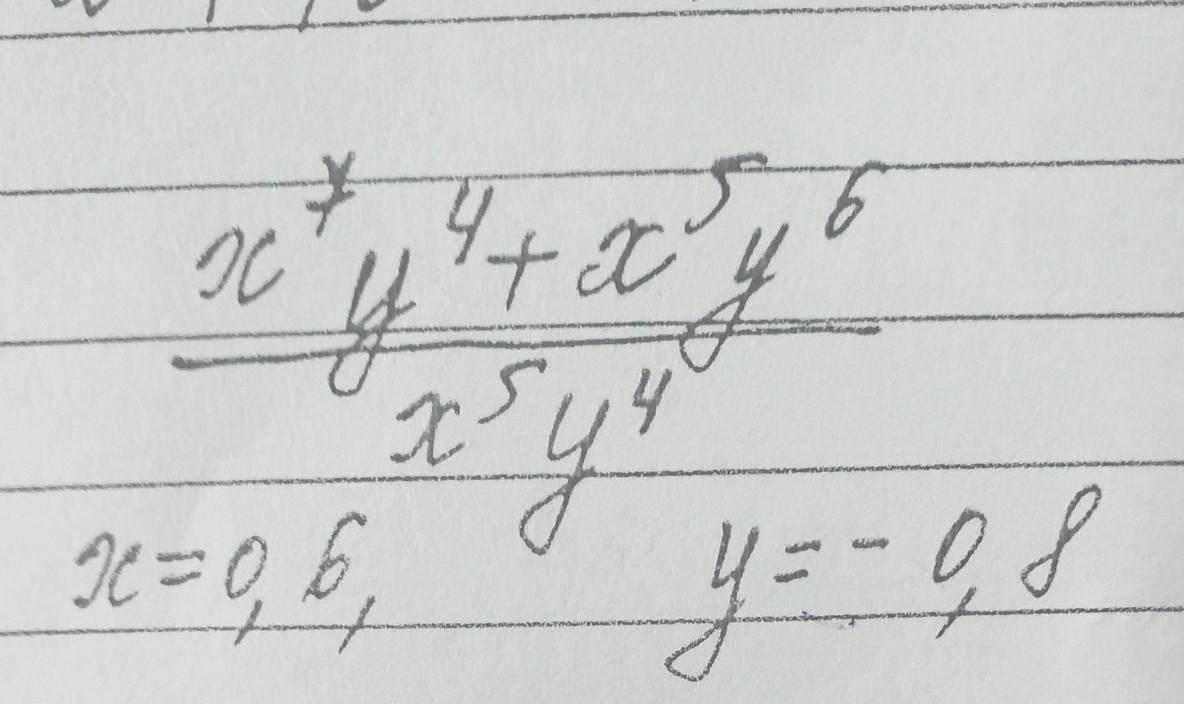 x⁷y⁴+x⁵y⁶
x⁵y⁴
x=0,6, y=-0,8